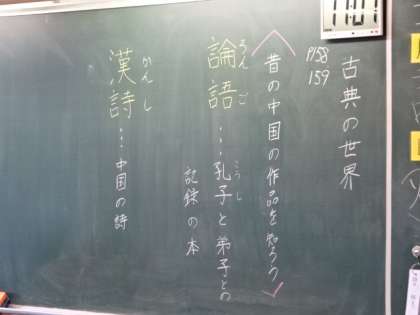 11:01
古典の世界
P158
159
昔の中国の作品を知ろう
ろんご
論語…孔子と弟子との
こうし
記録の本
かんし
漢詩…中国の詩